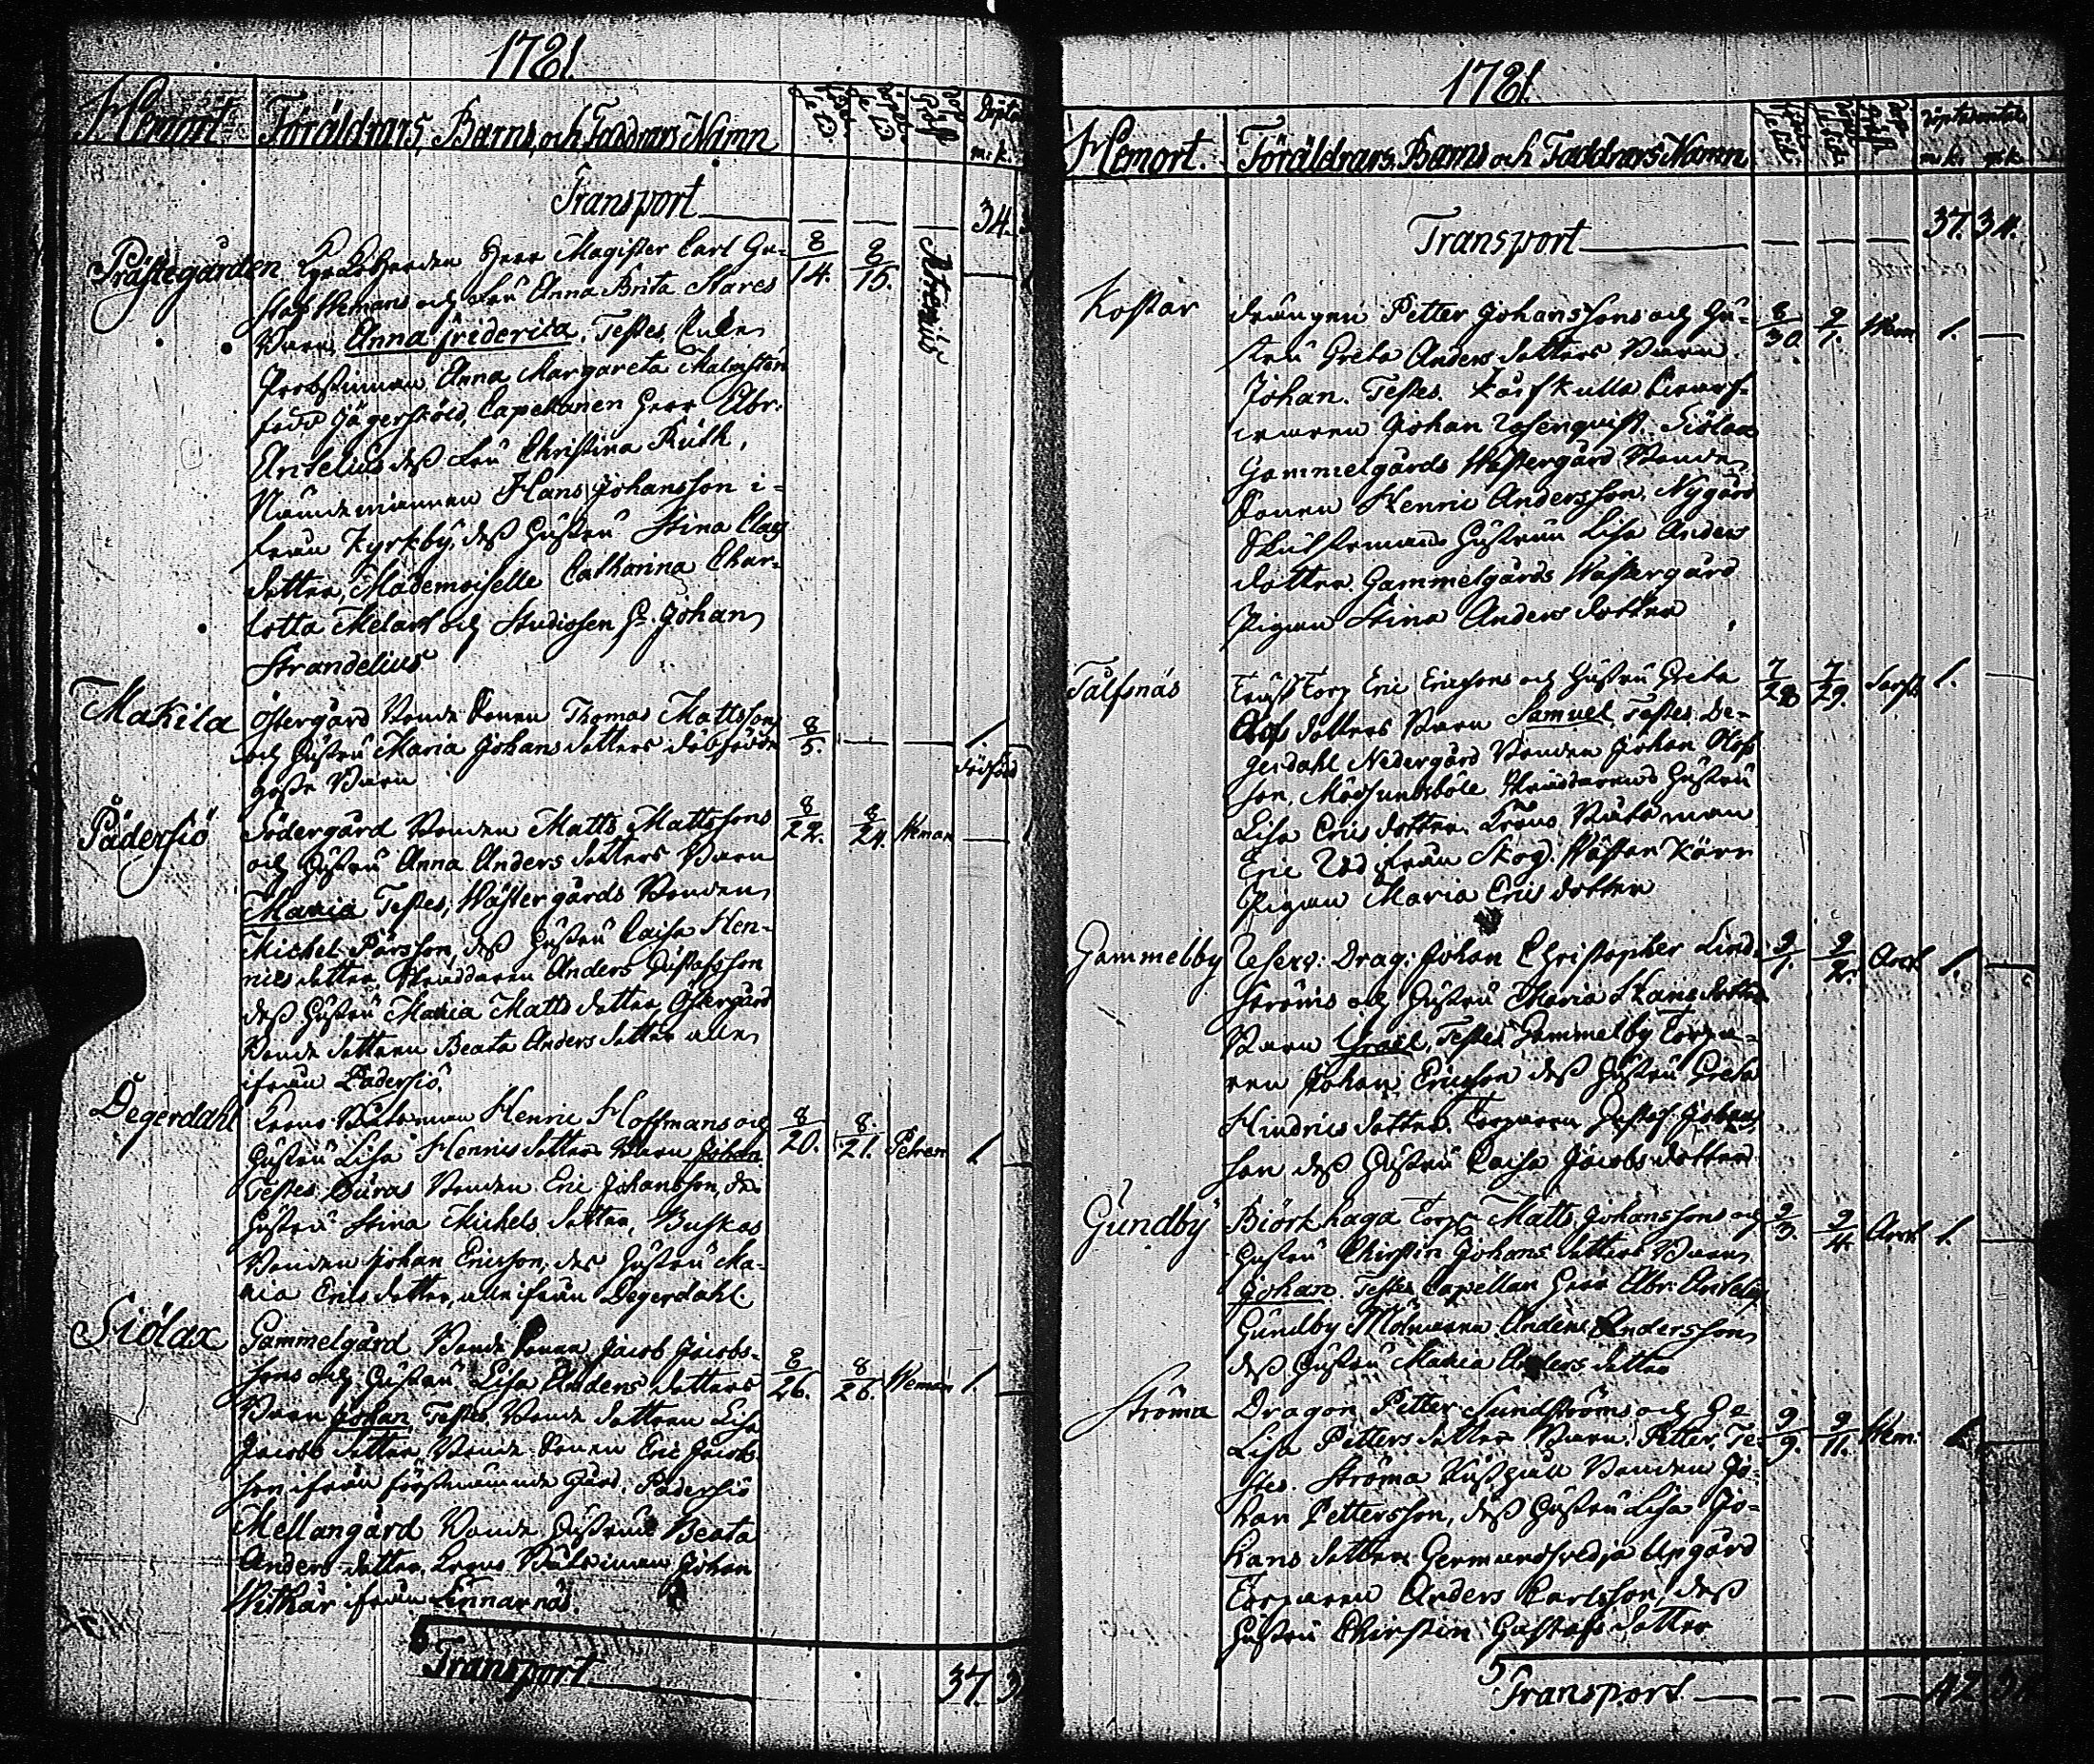 1781.
Hemort Föräldrars, Barns, och Faddrars Namn
Döpta
m.k.
Transport 34.
Prästegården Herr Magister Carl Gu-
staf Wemans och Fru Anna Brita Hares
Barn Anna Friderica. Testes,
Probstinnan Anna Margareta Malmsten
född Jägersköld, Capellanen Herr Abr:
Antelius dess Fru Christina Ruth,
Nämndemannen Hans Johansson i-
från Kyrkby, dess Hustru Stina Claes
dotter, Mademoiselle Catharina Char-
lotta Melart och Studiosen H. Johan
Strandelius
8/14. 8/15. Antelius
Makila Östergård Bonde Sonen Thomas Mattssons
och Hustru Maria Johans dotters dödfödde
gosse Barn
8/5. 1
dödföd
Pädersiö Södergård Bonden Matts Mattssons
och Hustru Anna Anders dotters Barn
Maria Testes, Wästergårds Bonden
Michel Pärsson, dess Hustru Caisa Hen-
rics dotter, Anders Gustafsson
dess Hustru Maria Matts dotter, Östergård
Bonde dottren Beata Anders dotter alla
ifrån Padersiö.
8/22. 8/24. Weman
Degerdahl Krono Båtsman Henric Hoffmans och
Hustru Lisa Henrics dotters Barn Johan.
Testes, Buras Bonden Eric Johansson, dess
Hustru Stina Michels dotter, Buskas
Bonden Johan Ericsson, dess Hustru Ma-
ria Erics dotter, alla ifrån Degerdahl.
8/20. 8/21. Petren 1
Siölax Gammelgård Bonde Sonen Jacob Jacobs-
sons och Hustru Lisa Anders dotters
Barn Johan Testes, Bonde dottren Lisa
Jacobs dotter, Bonde Sonen Eric Jacobs-
son ifrån förstnämnde Gård, Padersiö
Mellangård Bonde Hustrun Beata
Anders dotter, Krono Båtsman Johan
Withår ifrån Finnarnäs.
8/26. 8/26. Weman 1.
6 Transport 37. 3
1781.
Hemort. Föräldrars, Barns och Faddrars Namn
döpta antal
m.k. q.k.
Transport 37. 34.
Kostar drängen Petter Johanssons och Hu-
stru Greta Anders dotters Barn
Johan. Testes.
Johan Rosenquist, Siölax
Gammelgårds Wästergård Bonde
Sonen Henric Andersson, Nygård
Hustrun Lisa Anders
dotter. Gammelgårds Wästergård
Pigan Stina Anders dotter
8/30. 9/1. Wem 1.
Talfsnäs Torp Eric Ericssons och Hustru Greta
Olofs dotters Barn Samuel Testes. De-
gerdahl Nedergård Bonden Johan Olofs
son, Mögsundsböle Hustru
Lisa Erics dotter. Krono Båtsman
Eric Röd från Skog. Wäster Kärr
Pigan Maria Erics dotter
7/28 7/29. 1.
Gammelby Reserv: Drag: Johan Christopher Lind-
ströms och Hustru Maria Hans dotters
Barn Israel, Testes Gammelby Torpa-
ren Johan Ericsson dess Hustru Greta
Hindrics dotter. Torparen Gustaf Johans
son dess Hustru Caisa Jacobs dotter.
9/1. 9/2. 1.
Gundby Biörkhaga Torp: Matts Johanssons och
Hustru Chirstin Johans dotters Barn
Johan. Testes, Capellan Herr Abr: Antelius
Gundby Mölnaren Anders Andersson
dess Hustru Maria Anders dotter
9/3. 9/4. 1.
Ströma Dragon Petter Sundströms och H:
Lisa Petters dotters Barn. Petter, Te-
stes. Ströma Bonden Jo-
han Pettersson, dess Hustru Lisa Jo-
hans dotter Germundsvedja Uppgård
Torparen Anders Carlsson, dess
Hustru Chirstin Gustafs dotter
9/9. 9/11. Wem: 1
5 Transport 42. 34